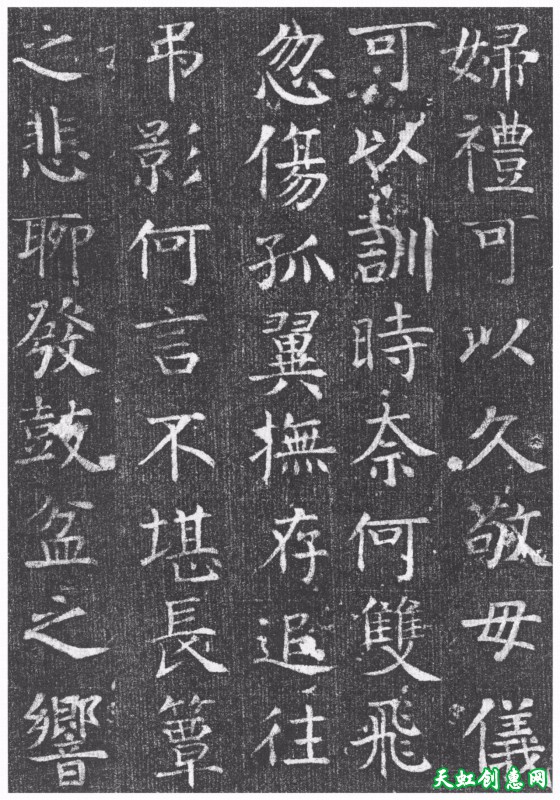 婦禮可以久敬母儀
可以訓時奈何雙飛
忽傷孤翼撫存追往
弔影何言不堪長簟
之悲聊發鼓盆之響
天虹创惠网